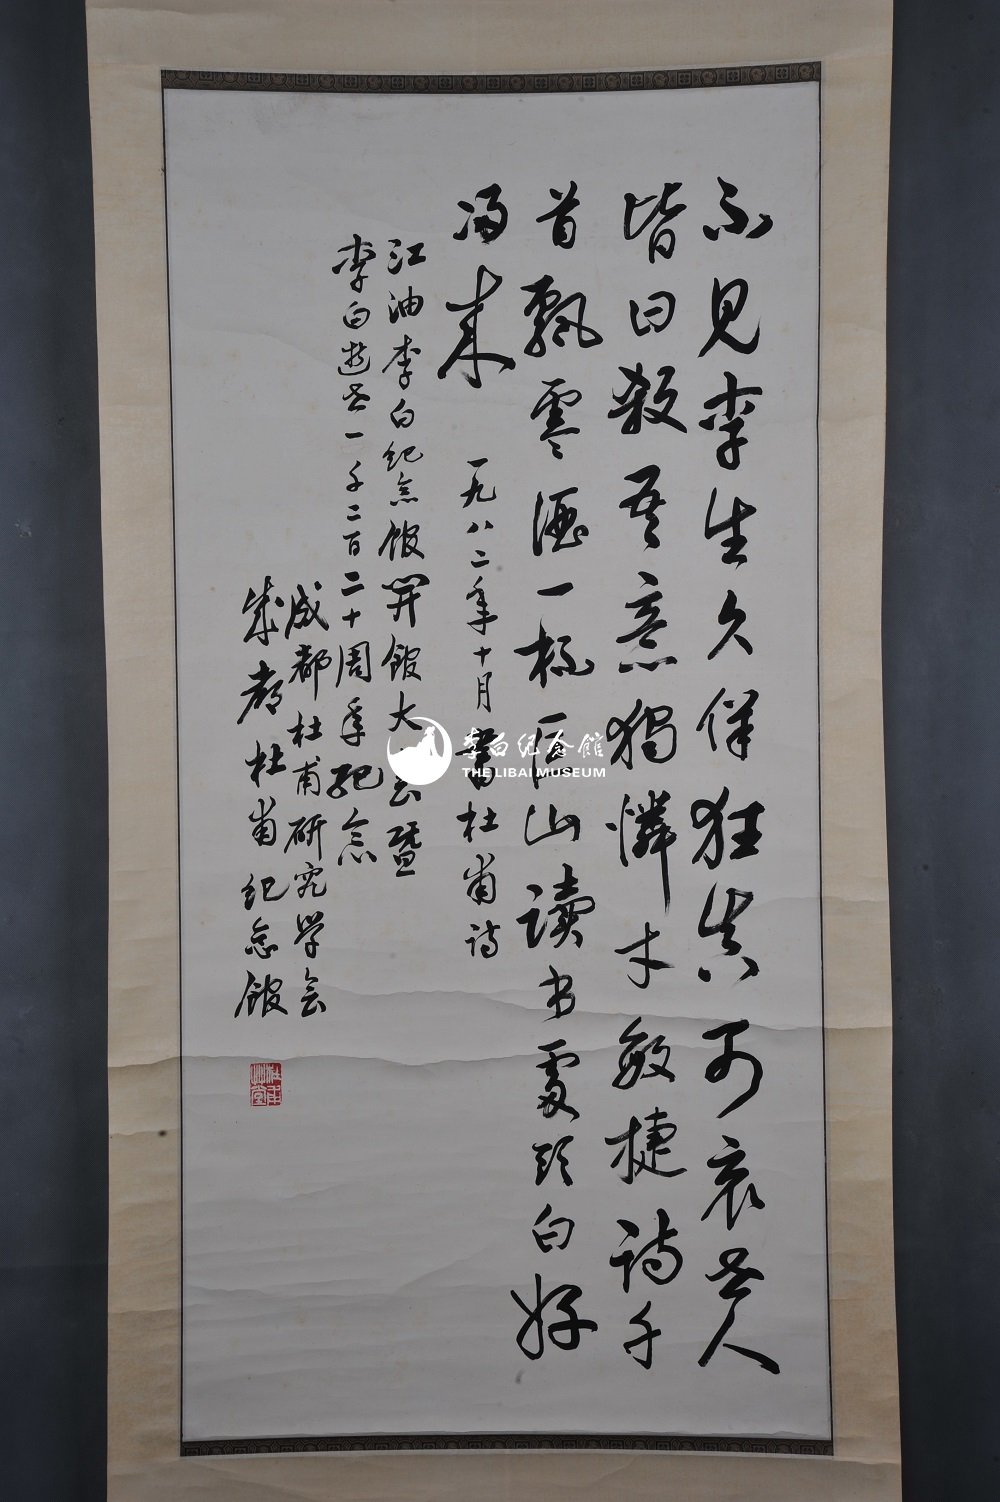 不見李生久佯狂真可哀世人
皆曰殺吾意獨憐才敏捷诗千
首飄零酒一杯匡山读书處头白好
归来 一九八二年十月書杜甫诗
江油李白纪念馆開馆大会暨
李白逝世一千二百二十周年纪念
成都杜甫研究学会
成都杜甫纪念馆
杜甫草堂
李白纪念館
THE LIBAI MUSEUM